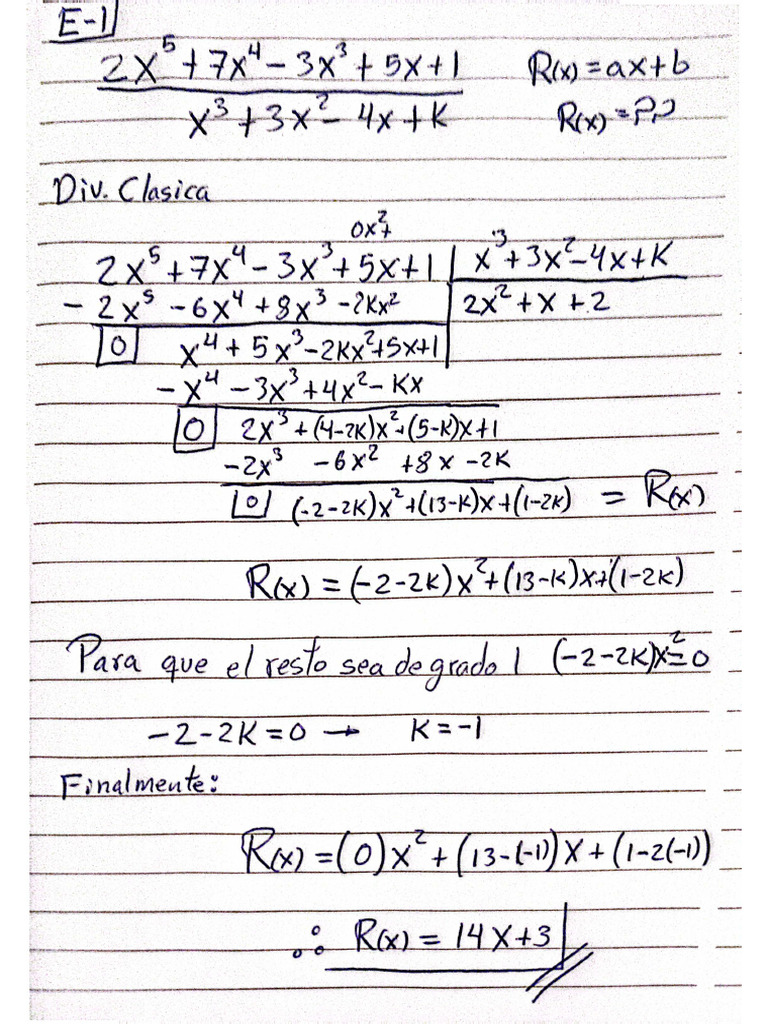 E-1
2x⁵ + 7x⁴ - 3x³ + 5x + 1 R(x) = ax + b
x³ + 3x² - 4x + K R(x) = ??
Div. Clasica
0x²+
2x⁵ + 7x⁴ - 3x³ + 5x + 1 | x³ + 3x² - 4x + K
- 2x⁵ - 6x⁴ + 8x³ - 2Kx² 2x² + x + 2
0 x⁴ + 5x³ - 2Kx² + 5x + 1
- x⁴ - 3x³ + 4x² - Kx
0 2x³ + (4-2K)x² + (5-K)x + 1
- 2x³ - 6x² + 8x - 2K
0 (-2-2K)x² + (13-K)x + (1-2K) = R(x)
R(x) = (-2-2K)x² + (13-K)x + (1-2K)
Para que el resto sea de grado 1 (-2-2K)x² = 0
-2-2K = 0 → K = -1
Finalmente:
R(x) = (0)x² + (13-(-1))x + (1-2(-1))
∴ R(x) = 14x + 3